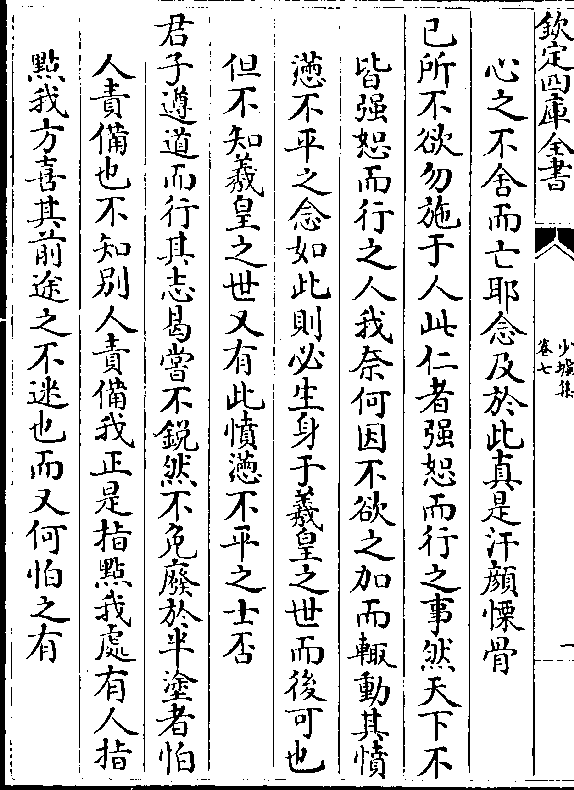 欽定四庫全書
少墟集
卷七
一
心之不舍而亡耶念及於此真是汗顔慄骨
己所不欲勿施于人此仁者强恕而行之事然天下不
皆强恕而行之人我奈何因不欲之加而輙動其憤
懣不平之念如此則必生身于羲皇之世而後可也
但不知羲皇之世又有此憤懣不平之士否
君子遵道而行其志曷嘗不鋭然不免廢於半塗者怕
人責備也不知别人責備我正是指㸃我處有人指
㸃我方喜其前途之不迷也而又何怕之有